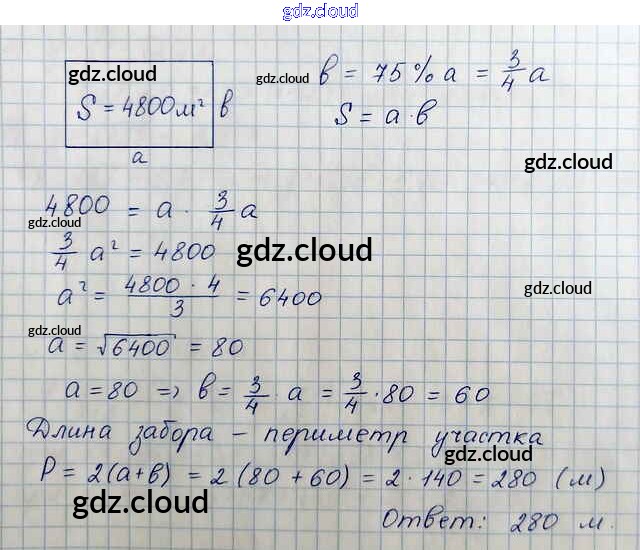 gdz.cloud
gdz.cloud
S = 4800 м² в
a
gdz.cloud в = 75 % a = 3/4 a
S = a · в
gdz.cloud
4800 = a · 3/4 a
gdz.cloud
3/4 a² = 4800 gdz.cloud
a² = 4800 · 4 / 3 = 6400 gdz.cloud
gdz.cloud
a = √6400 = 80
a = 80 => в = 3/4 · a = 3/4 · 80 = 60
Длина забора – периметр участка
gdz.cloud
P = 2(a+в) = 2 (80 + 60) = 2 · 140 = 280 (м)
gdz.cloud
Ответ: 280 м.